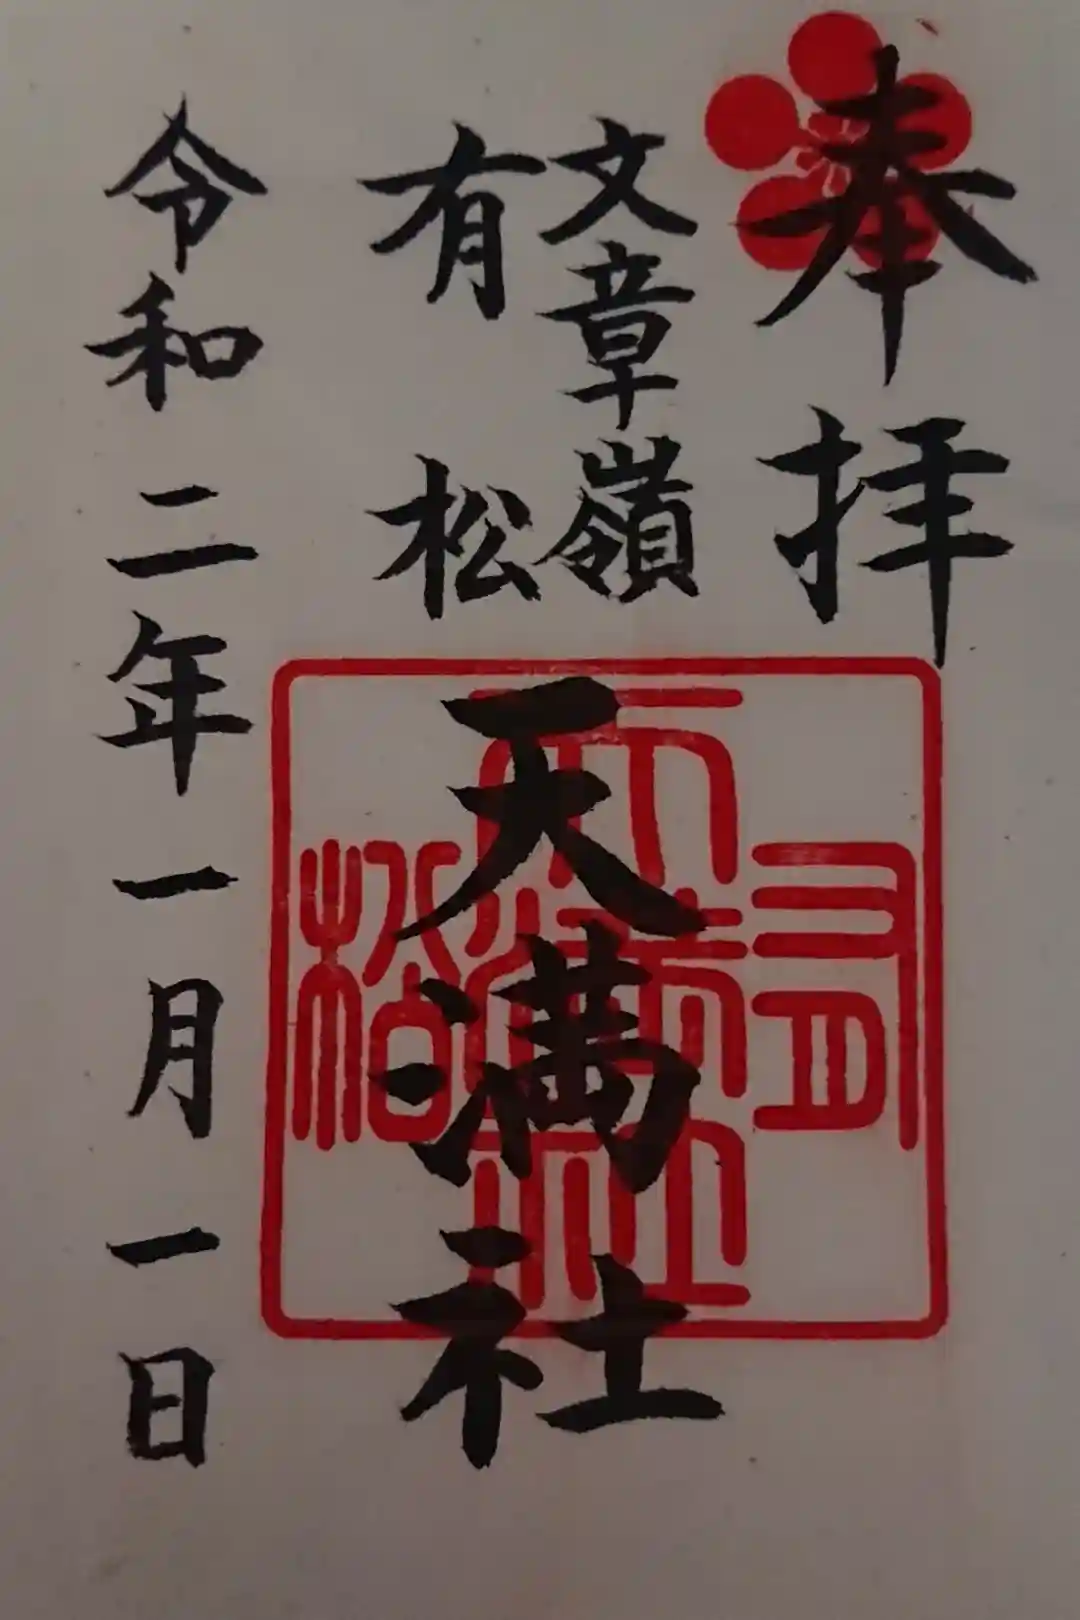 奉拝
文章嶺
有松
天満社
令和二年一月一日
有松天満社